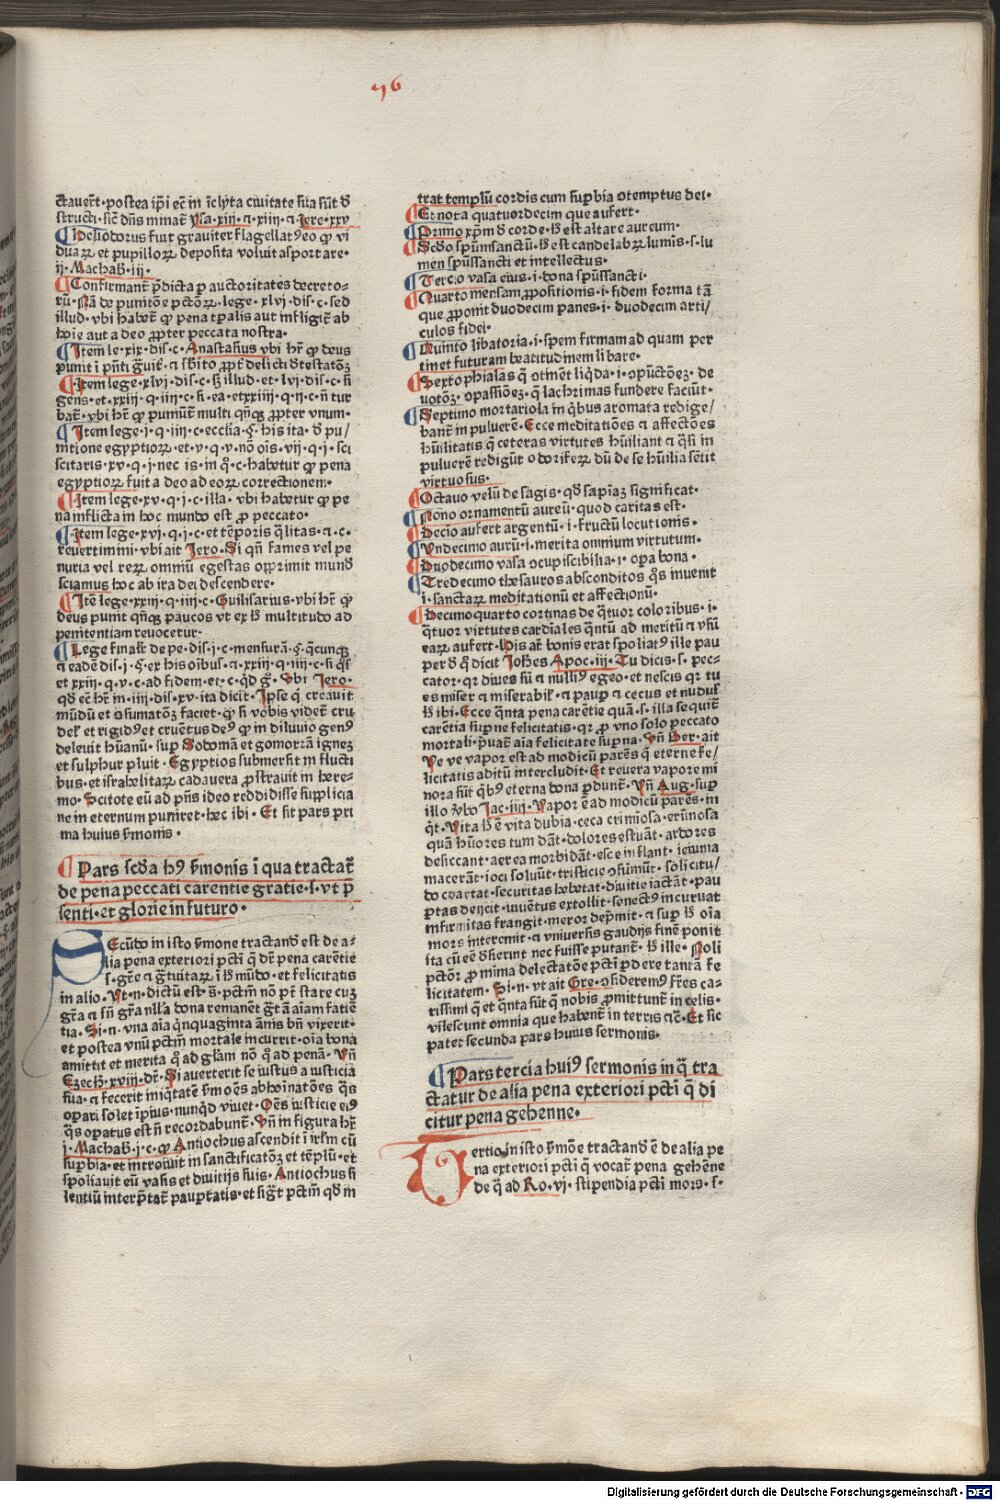 76
ctauer̄t · postea ip̄i ec̄ in īclyta ciuitate sua sūt đ
structi · sic̄ dn̄s minat̄ ysa · xiij · ⁊ · xiiij · ⁊ Iere · xxv
¶ Heliodorus fuit grauiter flagellatꝰ eo ꝙ vi
duaꝝ et pupilloꝝ deposita voluit asportare ·
ij · Machab̄ · iij ·
¶ Confirmant̄ p̄dicta ꝑ auctoritates decreto-
rū · Nā de punitōe pctōꝝ · lege · xlvj · dis · c · sed
illud · vbi habet̄ ꝙ pena tꝑalis aut infligit̄ ab
hoīe aut a deo ꝓpter peccata nostra ·
¶ Item le · xix · dis · c · Anastasius vbi hr̄ ꝙ deus
punit ī pn̄ti g̃uit̄ · ⁊ sb̄ito ꝓpt̄ delicti detestatōꝫ
¶ Item lege · xlvj · dis · c · s̄ illud · et · lvj · dis · c · si
gens · et · xxiij · q · iiij · c · si · ea · et xxiiij · q · ij · c · n̄ tur
bat̄ · vbi hr̄ ꝙ puniūt̄ multi qn̄qꝫ ꝓpter vnum ·
¶ Item lege · j · q · iiij · c · ecclīa · §. his ita · đ pu/
nitione egyptioꝝ · et · v · q · v · nō oīs · vij · q · j · sci
scitaris · xv · q · j · nec is · in q̄ · c · habetur ꝙ pena
egyptioꝝ fuit a deo ad eoꝝ correctionem ·
¶ Item lege · xv · q · j · c · illa · vbi habetur ꝙ pe
na inflicta in hoc mundo est ꝓ peccato ·
¶ Item lege · xvj · q · j · c · et tēporis q̄litas · ⁊ · c ·
reuertimini · vbi ait Iero · Si qn̄ fames vel pe
nuria vel reꝝ omniū egestas opprimit mundū
sciamus hoc ab ira dei descendere ·
¶ Itē lege · xxiij · q · iiij · c · Guilisarius · vbi hr̄ ꝙ
deus punit qn̄qꝫ paucos vt ex h̄ multitudo ad
penitentiam reuocetur ·
¶ Lege final̄r de pe · dis · j · c · mensurā · §. q̄cunqꝫ
⁊ eadē dis · j · §. ex his oībus · ⁊ · xxiij · q · iiij · c · si q̄s
et · xxiij · q · v · c · ad fidem · et · c · q̄d g̃ · Vbi Iero ·
qđ ec̄ hr̄ in · iiij · dis · xv · ita dicit · Ipse q̄ creauit
mūdū et ꝯsumatōꝫ faciet · ꝙ si vobis videt̄ cru
del̄ et rigidꝰ et cruētus deꝰ ꝙ in diluuio genꝰ
deleuit hūanū · suꝑ Sodomā et gomorrā ignez
et sulphur pluit · Egyptios submersit in flucti
bus · et israhelitaꝝ cadauera ꝓstrauit in here-
mo · Scitote eū ad pn̄s ideo reddidisse supplicia
ne in eternum puniret · hec ibi · Et sit pars pri
ma huius ẜmonis ·
¶ Pars scđa hꝰ ẜmonis ī qua tractat̄
de pena peccati carentie gratie · s · vt p̄
senti · et glorie in futuro ·
SEcūdo in isto ẜmone tractandū est de a-
lia pena exteriori pcti q̄ dr̄ pena carētie
s · gr̄e ⁊ g̃tuitaꝝ ī h̄ mūdo · et felicitatis
in alio · Vt · n · dictū est · s̄ · pctm̄ nō pt̄ stare cuꝫ
gr̄a ⁊ sn̄ gr̄a nll̄a bona remanēt g̃t ⁊ aīam faciē
tia · Si · n · vna aīa q̄nquaginta ānis bn̄ vixerit ·
et postea vnū pctm̄ mortale incurrit · oīa bona
amittit et merita q̄ ad glāmm nō q̄ ad penā · Vn̄
Ezech̄ · xviij · dr̄ · Si auerterit se iustus a iusticia
sua · ⁊ fecerit iniq̄tatē ẜm oēs abhoīnatōes q̄s
opari solet īpius · nunq̄d viuet · Oēs iusticie eiꝰ
q̄s opatus est n̄ recordabunt̄ · Vn̄ in figura hr̄
j · Machab̄ · j · c · ꝙ Antiochus ascendit ī ir̄lm cū
suꝑbia · et introiuit in sanctificatōꝫ et tēplū · et
spoliauit eū vasis et diuitijs suis · Antiochus si
lentiū interp̄tat̄ pauꝑtatis · et sig̃t pctm̄ qđ in
trat templū cordis cum suꝑbia ꝯtemptus dei ·
¶ Et nota quatuordecim que aufert ·
¶ Primo xp̄m đ corde · h̄ est altare aureum ·
¶ Scđo spūmsanctū · h̄ est candelabꝝ lumis · s · lu
men spūssancti et intellectus ·
¶ Tercio vasa eius · i · dona spūssancti ·
¶ Quarto mensam ꝓpositionis · i · fidem forma tā
que ꝓponit duodecim panes · i · duodecim arti/
culos fidei ·
¶ Quinto libatoria · i · spem firmam ad quam per
tinet futuram beatitudinem libare ·
¶ Sexto phialas q̄ ꝯtinēt liq̄da · i · ꝯpūctōeꝫ · de
uotōꝫ · ꝯpassiōeꝫ · q̄ lachrimas fundere faciūt ·
¶ Septimo mortariola in q̄bus aromata redige/
bant̄ in puluerē · Ecce meditatiōes ⁊ affectōes
hūilitatis q̄ ceteras virtutes hūiliant ⁊ q̄si in
puluerē redigūt odoriferꝝ dū de se hūilia sētit
virtuosus ·
¶ Octauo velū de sagis · qđ sapīaꝫ significat ·
¶ Nono ornamentū aureū · quod caritas est ·
¶ Decio aufert argentū · i · fructū locutionis ·
¶ Vndecimo aurū · i · merita omnium virtutum ·
¶ Duodecimo vasa ꝯcupiscibilia · i · oꝑa bona ·
¶ Tredecimo thesauros absconditos q̄s inuenit
· i · sanctaꝝ meditationū et affectionū ·
¶ Decimoquarto cortinas de q̄tuor coloribus · i ·
q̄tuor virtutes cardīales q̄ntū ad meritū ⁊ vsū
eaꝝ aufert · His at̄ bonis erat spoliatꝰ ille pau
per đ q̄ dicit Ioh̄es Apoc · iij · Tu dicis · s · pec-
cator · qꝛ diues sū ⁊ nulliꝰ egeo · et nescis qꝛ tu
es miser ⁊ miserabil̄ · ⁊ pauꝑ ⁊ cecus et nudus̄
h̄ ibi · Ecce q̄nta pena carētie quā · s · illa sequit̄
carētia suꝑne felicitatis · qꝛ ꝓ vno solo peccato
mortali · p̄uat̄ aīa felicitate suꝑna · Vn̄ Ber · ait
Ve ve vapor est ad modicū parēs q̄ eterne fe/
licitatis aditū intercludit · Et reuera vapore mi
nora sūt q̄bꝰ eterna bona ꝑdunt̄ · Vn̄ Aug · suꝑ
illo v̄bo Iac · iiij · Vapor ē ad modicū parēs · in
q̇t · Vita h̄ ē vita dubia · ceca · erimiosa · erūnosa
quā hūores tum dāt · dolores estuāt · ardores
desiccant · aerea morbidāt · esce inflant · ieiunia
macerāt · ioci soluūt · tristicie ꝯsumūt · solicitu/
do coartat · securitas hebetat · diuitie iactāt · pau
ꝑtas deijcit · iuuētus extollit · senectꝰ incuruat
infirmitas frangit · meror dep̄mit · ⁊ suꝑ h̄ oīa
mors interemit · ⁊ vniuersis gaudijs finē ponit
ita cū eē desierint nec fuisse putant̄ · h̄ ille · Noli
pctōr ꝓ minia delectatōe pcti ꝑdere tantā fe
licitatem · Si · n · vt ait Gre · ꝯsideremꝰ fr̄es ca-
rissimi q̄ et q̄nta sūt q̄ nobis ꝓmittunt̄ in celis ·
vilescunt omnia que habent̄ in terris ⁊c̄ · Et sic
patet secunda pars huius sermonis ·
¶ Pars tercia huiꝰ sermonis in q̄ tra
ctatur de alia pena exteriori pcti q̄ di
citur pena gehenne ·
TErtio in isto ẜmōe tractandū ē de alia pe
na exteriori pcti q̄ vocat̄ pena gehēne
de q̄ ad Ro · vj · stipendia pcti mors · s ·
Digitalisierung gefördert durch die Deutsche Forschungsgemeinschaft · DFG